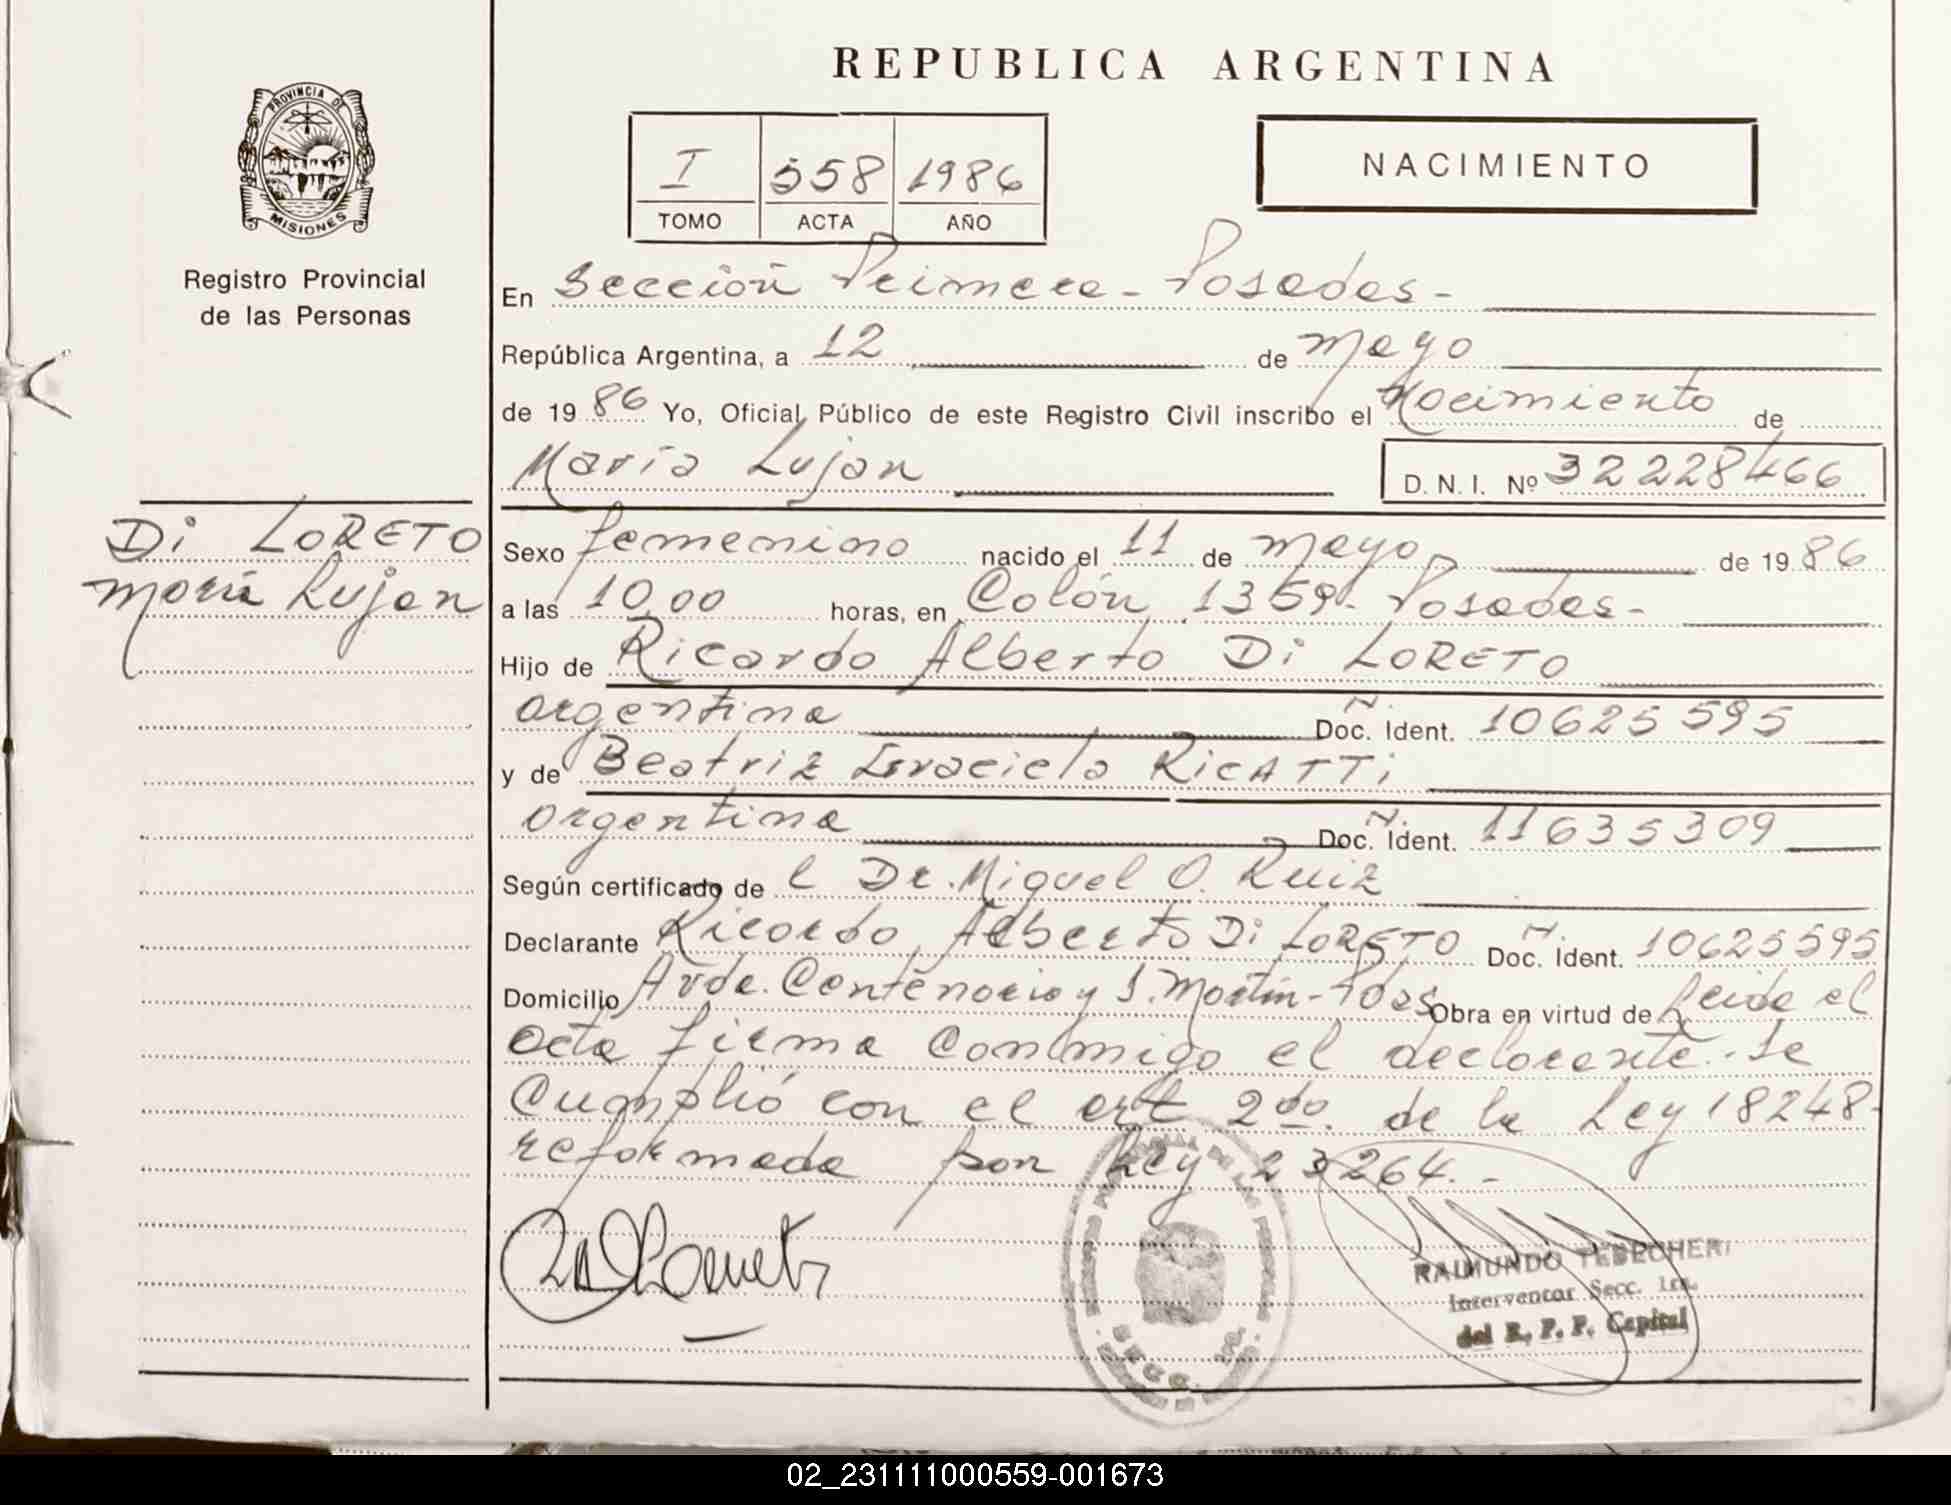 REPUBLICA ARGENTINA
PROVINCIA DE
MISIONES
Registro Provincial
de las Personas
I 558 1986
TOMO ACTA AÑO
NACIMIENTO
En Sección Primera - Posadas -
República Argentina, a 12 de mayo
de 1986 Yo, Oficial Público de este Registro Civil inscribo el Nacimiento de
María Lujan D. N. I. Nº 32228466
Di LORETO
María Lujan
Sexo femenino nacido el 11 de mayo de 1986
a las 10,00 horas, en Colón 1359 - Posadas -
Hijo de Ricardo Alberto Di LORETO
argentina Doc. Ident. N. 10625595
y de Beatriz Graciela RICATTi
argentina Doc. Ident. N. 11635309
Según certificado de l Dr. Miguel O. Ruiz
Declarante Ricardo Alberto Di LORETO Doc. Ident. N. 10625595
Domicilio Avda. Centenario y S. Martín - Pdas Obra en virtud de Leida el
acta firma conmigo el declarante.- Se
cumplió con el art 2do. de la Ley 18248-
reformada por Ley 23264.-
RAIMUNDO
Interventor Secc. 1ra.
del R. P. P. Capital
SECC. 1RA.
02_231111000559-001673